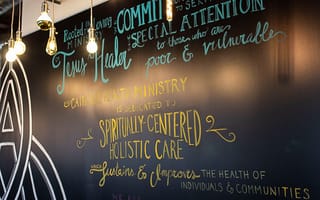 Rooted in the loving
MINISTRY
Jesus as Healer
COMMIT
SPECIAL ATTENTION
to those who are
poor & vulnerable
MINISTRY
DEDICATED TO
SPIRITUALLY-CENTERED
HOLISTIC CARE
WHICH Sustains & Improves THE HEALTH OF
INDIVIDUALS & COMMUNITIES